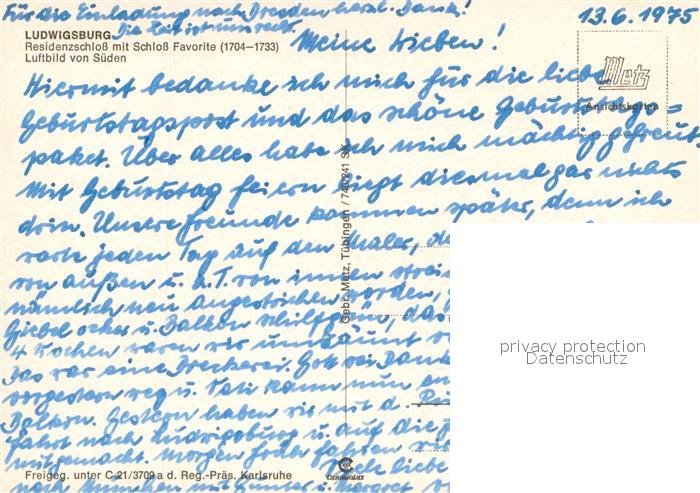 Für die Einladung nach Dresden herzl. Dank!
Die Zeit ist uns recht.
13.6.1975
LUDWIGSBURG
Residenzschloß mit Schloß Favorite (1704—1733)
Luftbild von Süden
Metz
Ansichtskarten
Meine Lieben!
Hiermit bedanke ich mich für die liebe
Geburtstagspost und das schöne Geburtstags=
paket. Über alles habe ich mich mächtig gefreut.
Mit Geburtstag feiern liegt diesmal gar nichts
drin. Unsere Freunde kommen später, denn ich
warte jeden Tag auf den Maler, de
von außen u. z.T. von innen strei
nämlich neu angestrichen werden,
Giebel ocker u. Balkon schilfgrün, das
4 Wochen waren wir umzäunt
Das war eine Dreckerei. Gott sei Dank
vorgestern weg u. kann nun
Balkon. Gestern haben wir mit d.
fahrt nach Ludwigsburg u. auf die
mitgemacht. Morgen früh fahren wir
nach München mit Günter u. Margret
Viele liebe
Gebr. Metz, Tübingen / 740241 SK
Freigeg. unter C 21/3709 a d. Reg.-Präs. Karlsruhe
privacy protection
Datenschutz